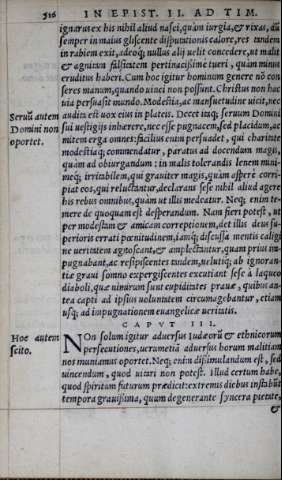 516 IN EPIST. II. AD TIM.
ignarus ex his nihil aliud nasci, quàm iurgia, & rixas, dũ
semper in maius gliscente disputationis calore, res tandem
in rabiem exit, adeoq; nullus alij uelit concedere, ut malit
& agnitam falsitatem pertinacissime tueri, quàm minus
eruditus haberi. Cum hoc igitur hominum genere nõ con
seres manum, quando uinci non possunt. Christus non hac
uia persuasit mundo. Modestia, ac mansuetudine uicit, nec
Seruũ autem audita est uox eius in plateis. Decet itaq; seruum Domini
Domini non sui uestigijs inhærere, nec esse pugnacem, sed placidum, ac
oportet. mitem erga omnes: facilius enim persuadet, qui charitate
modestiaq; commendatur, paratus ad docendum magis,
quàm ad obiurgandum: in malis tolerandis lenem mini-
meq; irritabilem, qui grauiter magis, quàm asperè corri
piat eos, qui reluctantur, declarans sese nihil aliud agere
his rebus omnibus, quàm ut illis medeatur. Neq; enim te-
mere de quoquam est desperandum. Nam fieri potest, ut
per modestam & amicam correptionem, det illis deus su-
perioris errati pœnitudinem, iamq; discussa mentis caligi
ne ueritatem agnoscant, & amplectantur, quam prius im-
pugnabant, ac resipiscentes tandem, uelutiq; ab ignoran-
tiæ graui somno expergiscentes excutiant sese à laqueo
diaboli, quæ nimirum sunt cupiditates prauæ, quibus an-
tea capti ad ipsius uoluntatem circumagebantur, etiam
usq; ad impugnationem euangelicæ ueritatis.
CAPVT III.
Hoc autem NOn solum igitur aduersus Iudæorũ & ethnicorum
scito. persecutiones, uerumetiã aduersus horum malitiam
nos muniamus oportet. Neq; enim dissimulandum est, sed
uincendum, quod uitari non potest. Illud certum habe,
quod spiritus futurum prædicit: extremis diebus instabũt
tempora grauissima, quum degenerante syncera pietate,
&